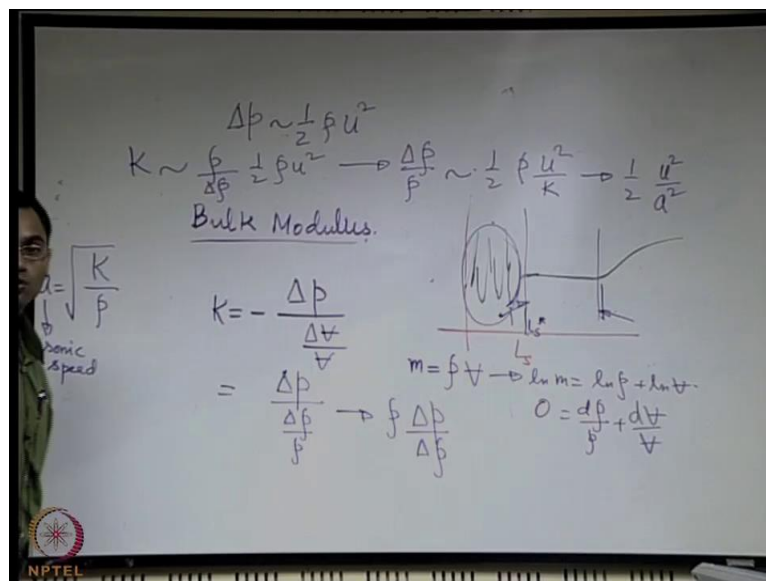 Δp ~ 1/2 ρu²
K ~ ρ/Δρ 1/2 ρu² → Δρ/ρ ~ 1/2 ρ u²/K → 1/2 u²/a²
Bulk Modulus.
a = √(K/ρ)
sonic speed
K = - Δp/(ΔV/V)
= Δp/(Δρ/ρ) → ρ Δp/Δρ
Ls*
Ls
m = ρV → ln m = ln ρ + ln V.
0 = dρ/ρ + dV/V
NPTEL